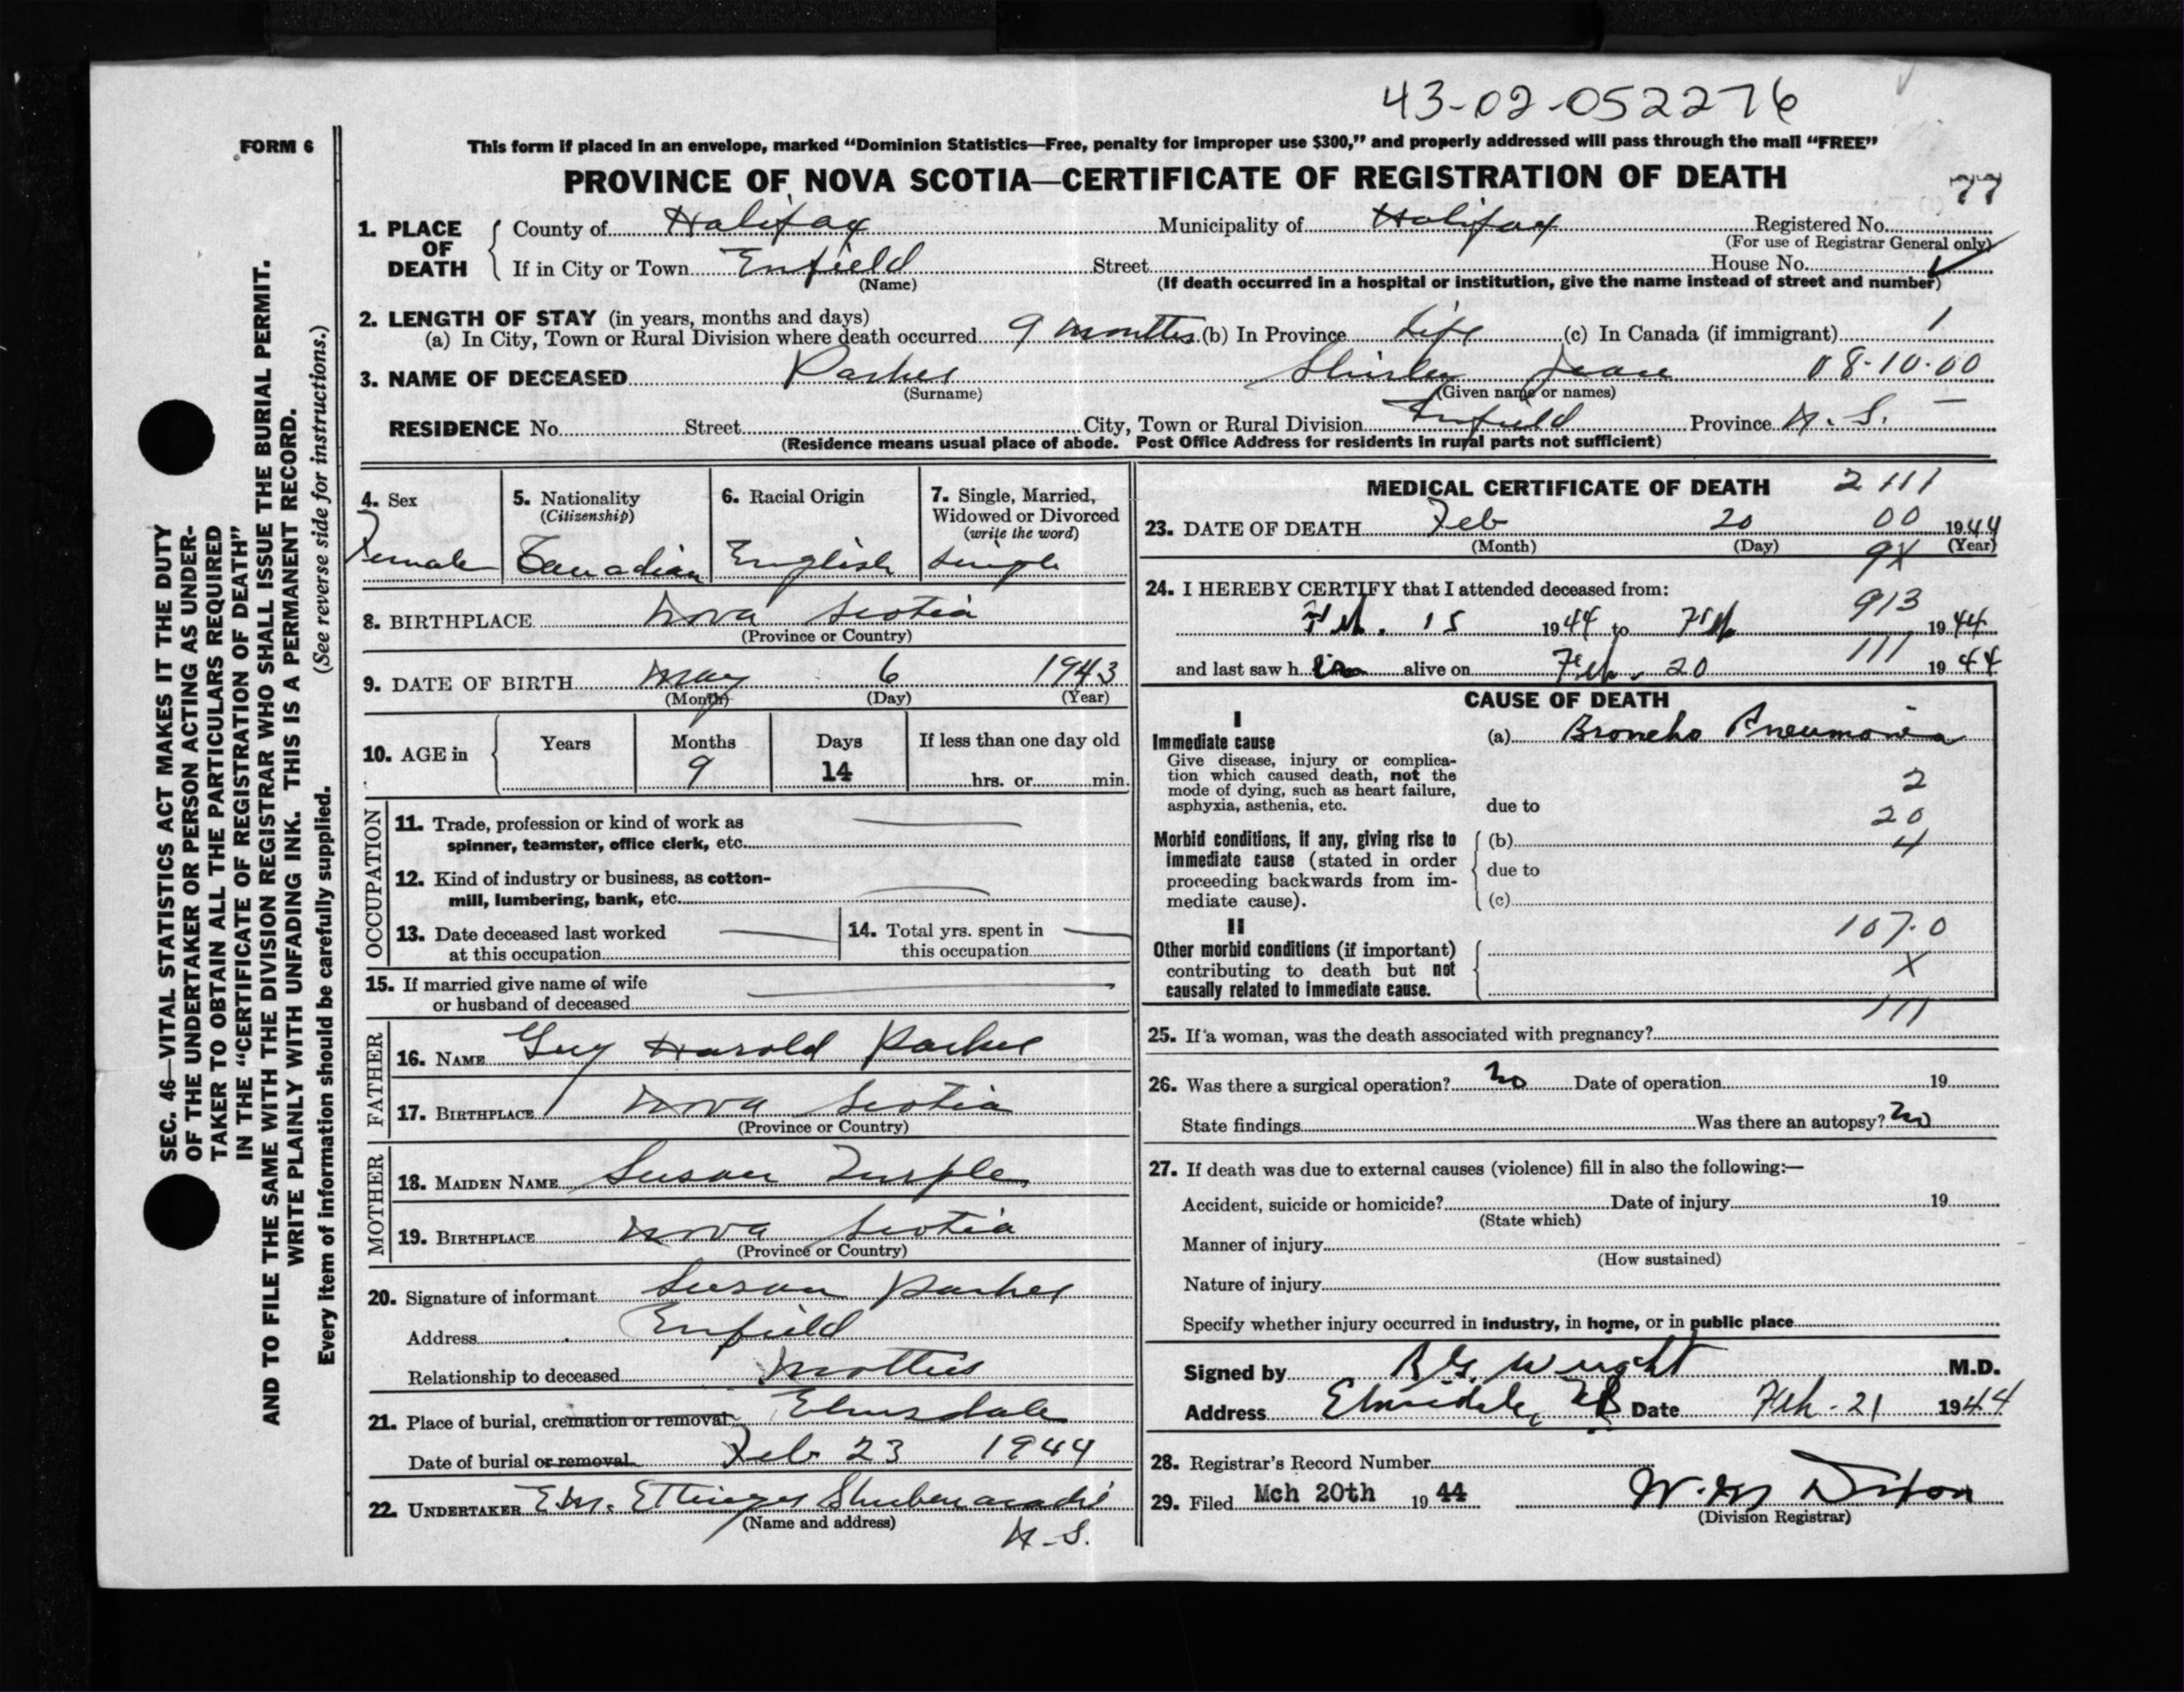 43-02-052276
FORM 6
This form if placed in an envelope, marked "Dominion Statistics—Free, penalty for improper use $300," and properly addressed will pass through the mail "FREE"
PROVINCE OF NOVA SCOTIA—CERTIFICATE OF REGISTRATION OF DEATH
77
1. PLACE OF DEATH
County of Halifax Municipality of Halifax Registered No.
(For use of Registrar General only)
If in City or Town Enfield Street House No.
(Name) (If death occurred in a hospital or institution, give the name instead of street and number)
2. LENGTH OF STAY (in years, months and days)
(a) In City, Town or Rural Division where death occurred 9 months (b) In Province Life (c) In Canada (if immigrant) 1
3. NAME OF DECEASED Parker Shirley Jean 08-10-00
(Surname) (Given name or names)
RESIDENCE No. Street City, Town or Rural Division Enfield Province N.S. —
(Residence means usual place of abode. Post Office Address for residents in rural parts not sufficient)
SEC. 46—VITAL STATISTICS ACT MAKES IT THE DUTY
OF THE UNDERTAKER OR PERSON ACTING AS UNDER-
TAKER TO OBTAIN ALL THE PARTICULARS REQUIRED
IN THE "CERTIFICATE OF REGISTRATION OF DEATH"
AND TO FILE THE SAME WITH THE DIVISION REGISTRAR WHO SHALL ISSUE THE BURIAL PERMIT.
WRITE PLAINLY WITH UNFADING INK. THIS IS A PERMANENT RECORD.
Every item of information should be carefully supplied. (See reverse side for instructions.)
4. Sex
Female
5. Nationality
(Citizenship)
Canadian
6. Racial Origin
English
7. Single, Married,
Widowed or Divorced
(write the word)
Single
8. BIRTHPLACE Nova Scotia
(Province or Country)
9. DATE OF BIRTH May 6 1943
(Month) (Day) (Year)
10. AGE in Years Months Days If less than one day old
9 14 hrs. or min.
OCCUPATION
11. Trade, profession or kind of work as
spinner, teamster, office clerk, etc.
12. Kind of industry or business, as cotton-
mill, lumbering, bank, etc.
13. Date deceased last worked
at this occupation
14. Total yrs. spent in
this occupation
15. If married give name of wife
or husband of deceased
FATHER
16. NAME Guy Harold Parker
17. BIRTHPLACE Nova Scotia
(Province or Country)
MOTHER
18. MAIDEN NAME Susan Turple
19. BIRTHPLACE Nova Scotia
(Province or Country)
20. Signature of informant Susan Parker
Address Enfield
Relationship to deceased Mother
21. Place of burial, cremation or removal Elmsdale
Date of burial or removal Feb 23 1944
22. UNDERTAKER Ettinger Shubenacadie
(Name and address)
N.S.
MEDICAL CERTIFICATE OF DEATH 2111
23. DATE OF DEATH Feb 20 00 1944
(Month) (Day) 9X (Year)
24. I HEREBY CERTIFY that I attended deceased from:
913
Feb. 15 1944 to Feb 1944
and last saw h alive on Feb. 20 111 1944
CAUSE OF DEATH
I
Immediate cause
Give disease, injury or complica-
tion which caused death, not the
mode of dying, such as heart failure,
asphyxia, asthenia, etc.
(a) Broncho Pneumonia
2
due to
20
Morbid conditions, if any, giving rise to
immediate cause (stated in order
proceeding backwards from im-
mediate cause).
(b) 4
due to
(c)
II
107.0
Other morbid conditions (if important)
contributing to death but not
causally related to immediate cause.
X
111
25. If a woman, was the death associated with pregnancy?
26. Was there a surgical operation? No Date of operation 19
State findings Was there an autopsy? No
27. If death was due to external causes (violence) fill in also the following:—
Accident, suicide or homicide? Date of injury 19
(State which)
Manner of injury
(How sustained)
Nature of injury
Specify whether injury occurred in industry, in home, or in public place
Signed by R G. Wright M.D.
Address Elmsdale, NS Date Feb. 21 1944
28. Registrar's Record Number
29. Filed Mch 20th 1944 Dixon
(Division Registrar)